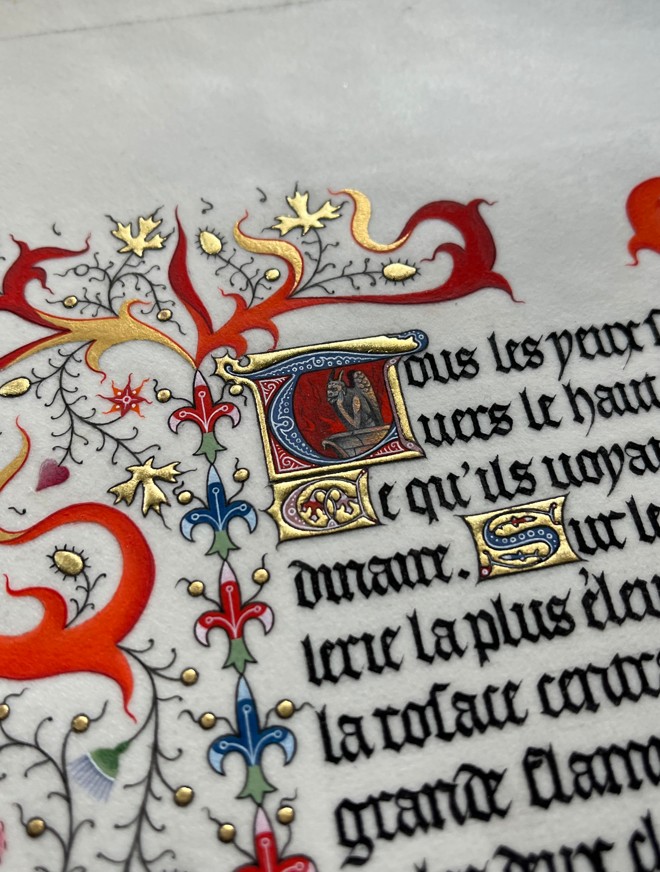 Tous les yeux
uers le haut
Ce qu'ils uoyai
dinaire. Sur le
lerie la plus éleu
la roſace centra
grande flam
les deux cl